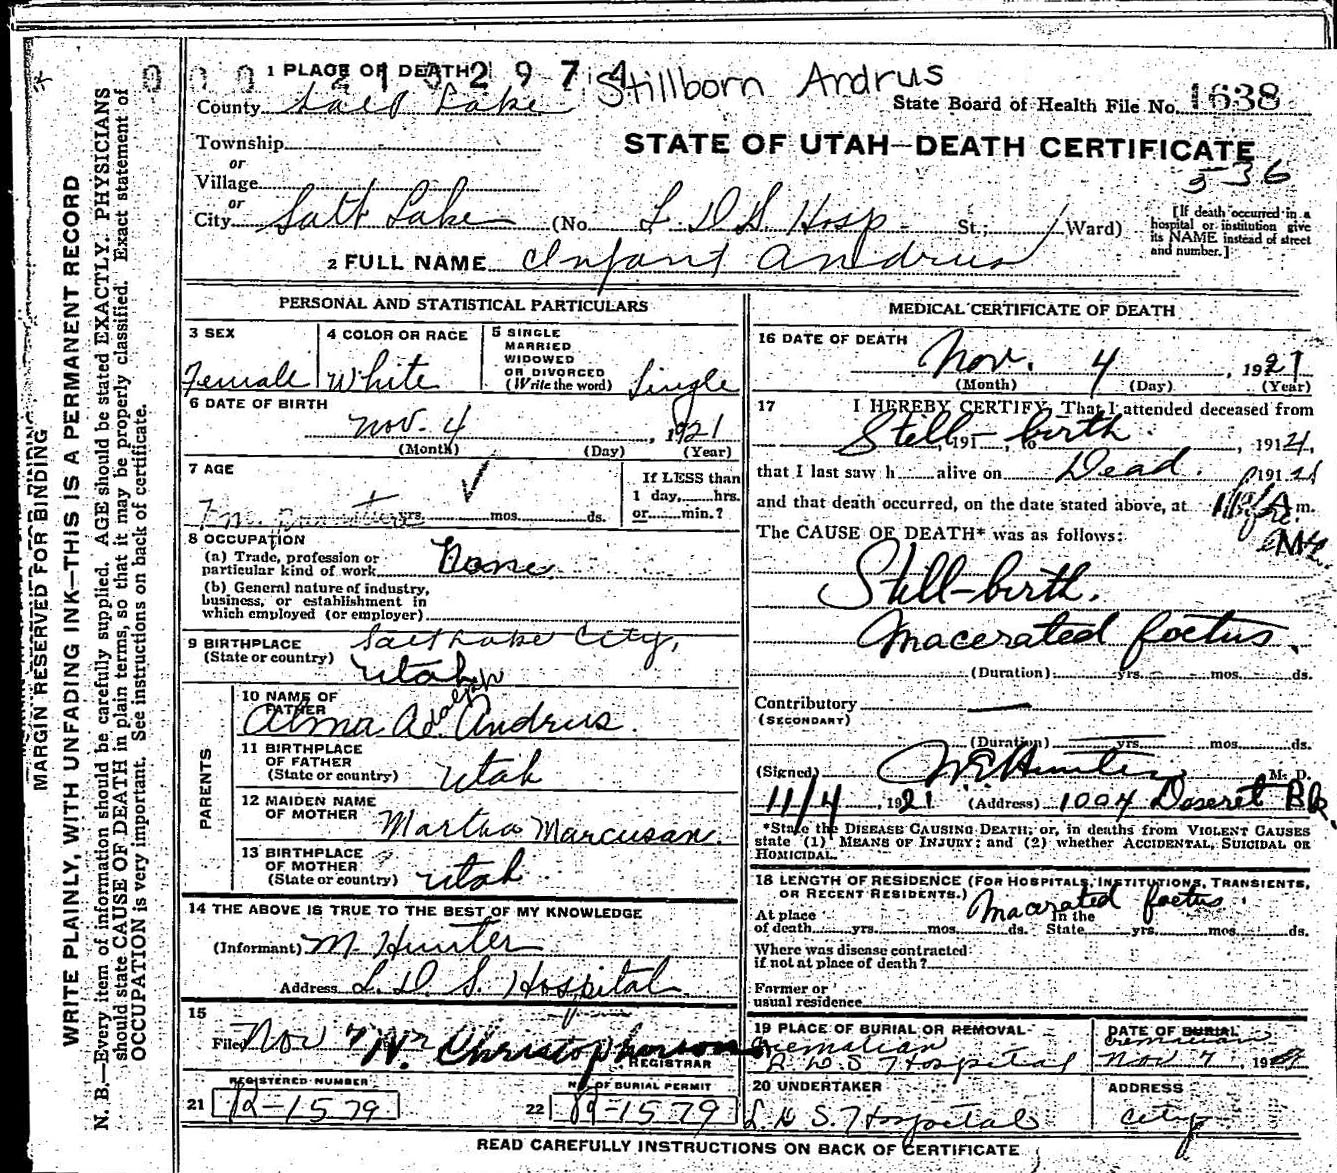 Stillborn Andrus
1 PLACE OF DEATH
County Salt Lake
State Board of Health File No. 1638
Township
or
Village
or
STATE OF UTAH—DEATH CERTIFICATE
536
City Salt Lake (No. L. D. S. Hosp St.; Ward)
[If death occurred in a hospital or institution give its NAME instead of street and number.]
2 FULL NAME Infant Andrus
PERSONAL AND STATISTICAL PARTICULARS
3 SEX
Female
4 COLOR OR RACE
White
5 SINGLE
MARRIED
WIDOWED
OR DIVORCED
(Write the word) Single
6 DATE OF BIRTH
Nov. 4, 1921
(Month) (Day) (Year)
7 AGE
yrs. mos. ds.
If LESS than
1 day, hrs.
or min.?
8 OCCUPATION
(a) Trade, profession or
particular kind of work None
(b) General nature of industry,
business, or establishment in
which employed (or employer)
9 BIRTHPLACE
(State or country)
Salt Lake City,
Utah
PARENTS
10 NAME OF
FATHER
Alma Adolph Andrus
11 BIRTHPLACE
OF FATHER
(State or country) Utah
12 MAIDEN NAME
OF MOTHER Martha Marcusan
13 BIRTHPLACE
OF MOTHER
(State or country) Utah
14 THE ABOVE IS TRUE TO THE BEST OF MY KNOWLEDGE
(Informant) M. Hunter
Address L. D. S. Hospital
15
Filed Nov 7 Christopherson
REGISTRAR
REGISTERED NUMBER
21 R-1579
NO. OF BURIAL PERMIT
22 R-1579
MEDICAL CERTIFICATE OF DEATH
16 DATE OF DEATH
Nov. 4, 1921
(Month) (Day) (Year)
17 I HEREBY CERTIFY, That I attended deceased from
Still 191 — to birth, 191
that I last saw h alive on Dead. 191
and that death occurred, on the date stated above, at m.
The CAUSE OF DEATH* was as follows:
Still-birth.
Macerated foetus.
(Duration) yrs. mos. ds.
Contributory —
(SECONDARY)
(Duration) yrs. mos. ds.
(Signed) Hunter M. D.
11/4, 1921 (Address) 1004 Deseret Bk.
*State the DISEASE CAUSING DEATH; or, in deaths from VIOLENT CAUSES
state (1) MEANS OF INJURY; and (2) whether ACCIDENTAL, SUICIDAL OR
HOMICIDAL.
18 LENGTH OF RESIDENCE (FOR HOSPITALS, INSTITUTIONS, TRANSIENTS,
OR RECENT RESIDENTS.)
Macerated foetus.
At place In the
of death yrs. mos. ds. State yrs. mos. ds.
Where was disease contracted
if not at place of death?
Former or
usual residence
19 PLACE OF BURIAL OR REMOVAL
Cremation
L. D. S. Hospital
DATE OF BURIAL
Cremation
Nov 7, 192
20 UNDERTAKER
L. D. S. Hospital
ADDRESS
City
READ CAREFULLY INSTRUCTIONS ON BACK OF CERTIFICATE
MARGIN RESERVED FOR BINDING
WRITE PLAINLY, WITH UNFADING INK—THIS IS A PERMANENT RECORD
N. B.—Every item of information should be carefully supplied. AGE should be stated EXACTLY. PHYSICIANS
should state CAUSE OF DEATH in plain terms, so that it may be properly classified. Exact statement of
OCCUPATION is very important. See instructions on back of certificate.